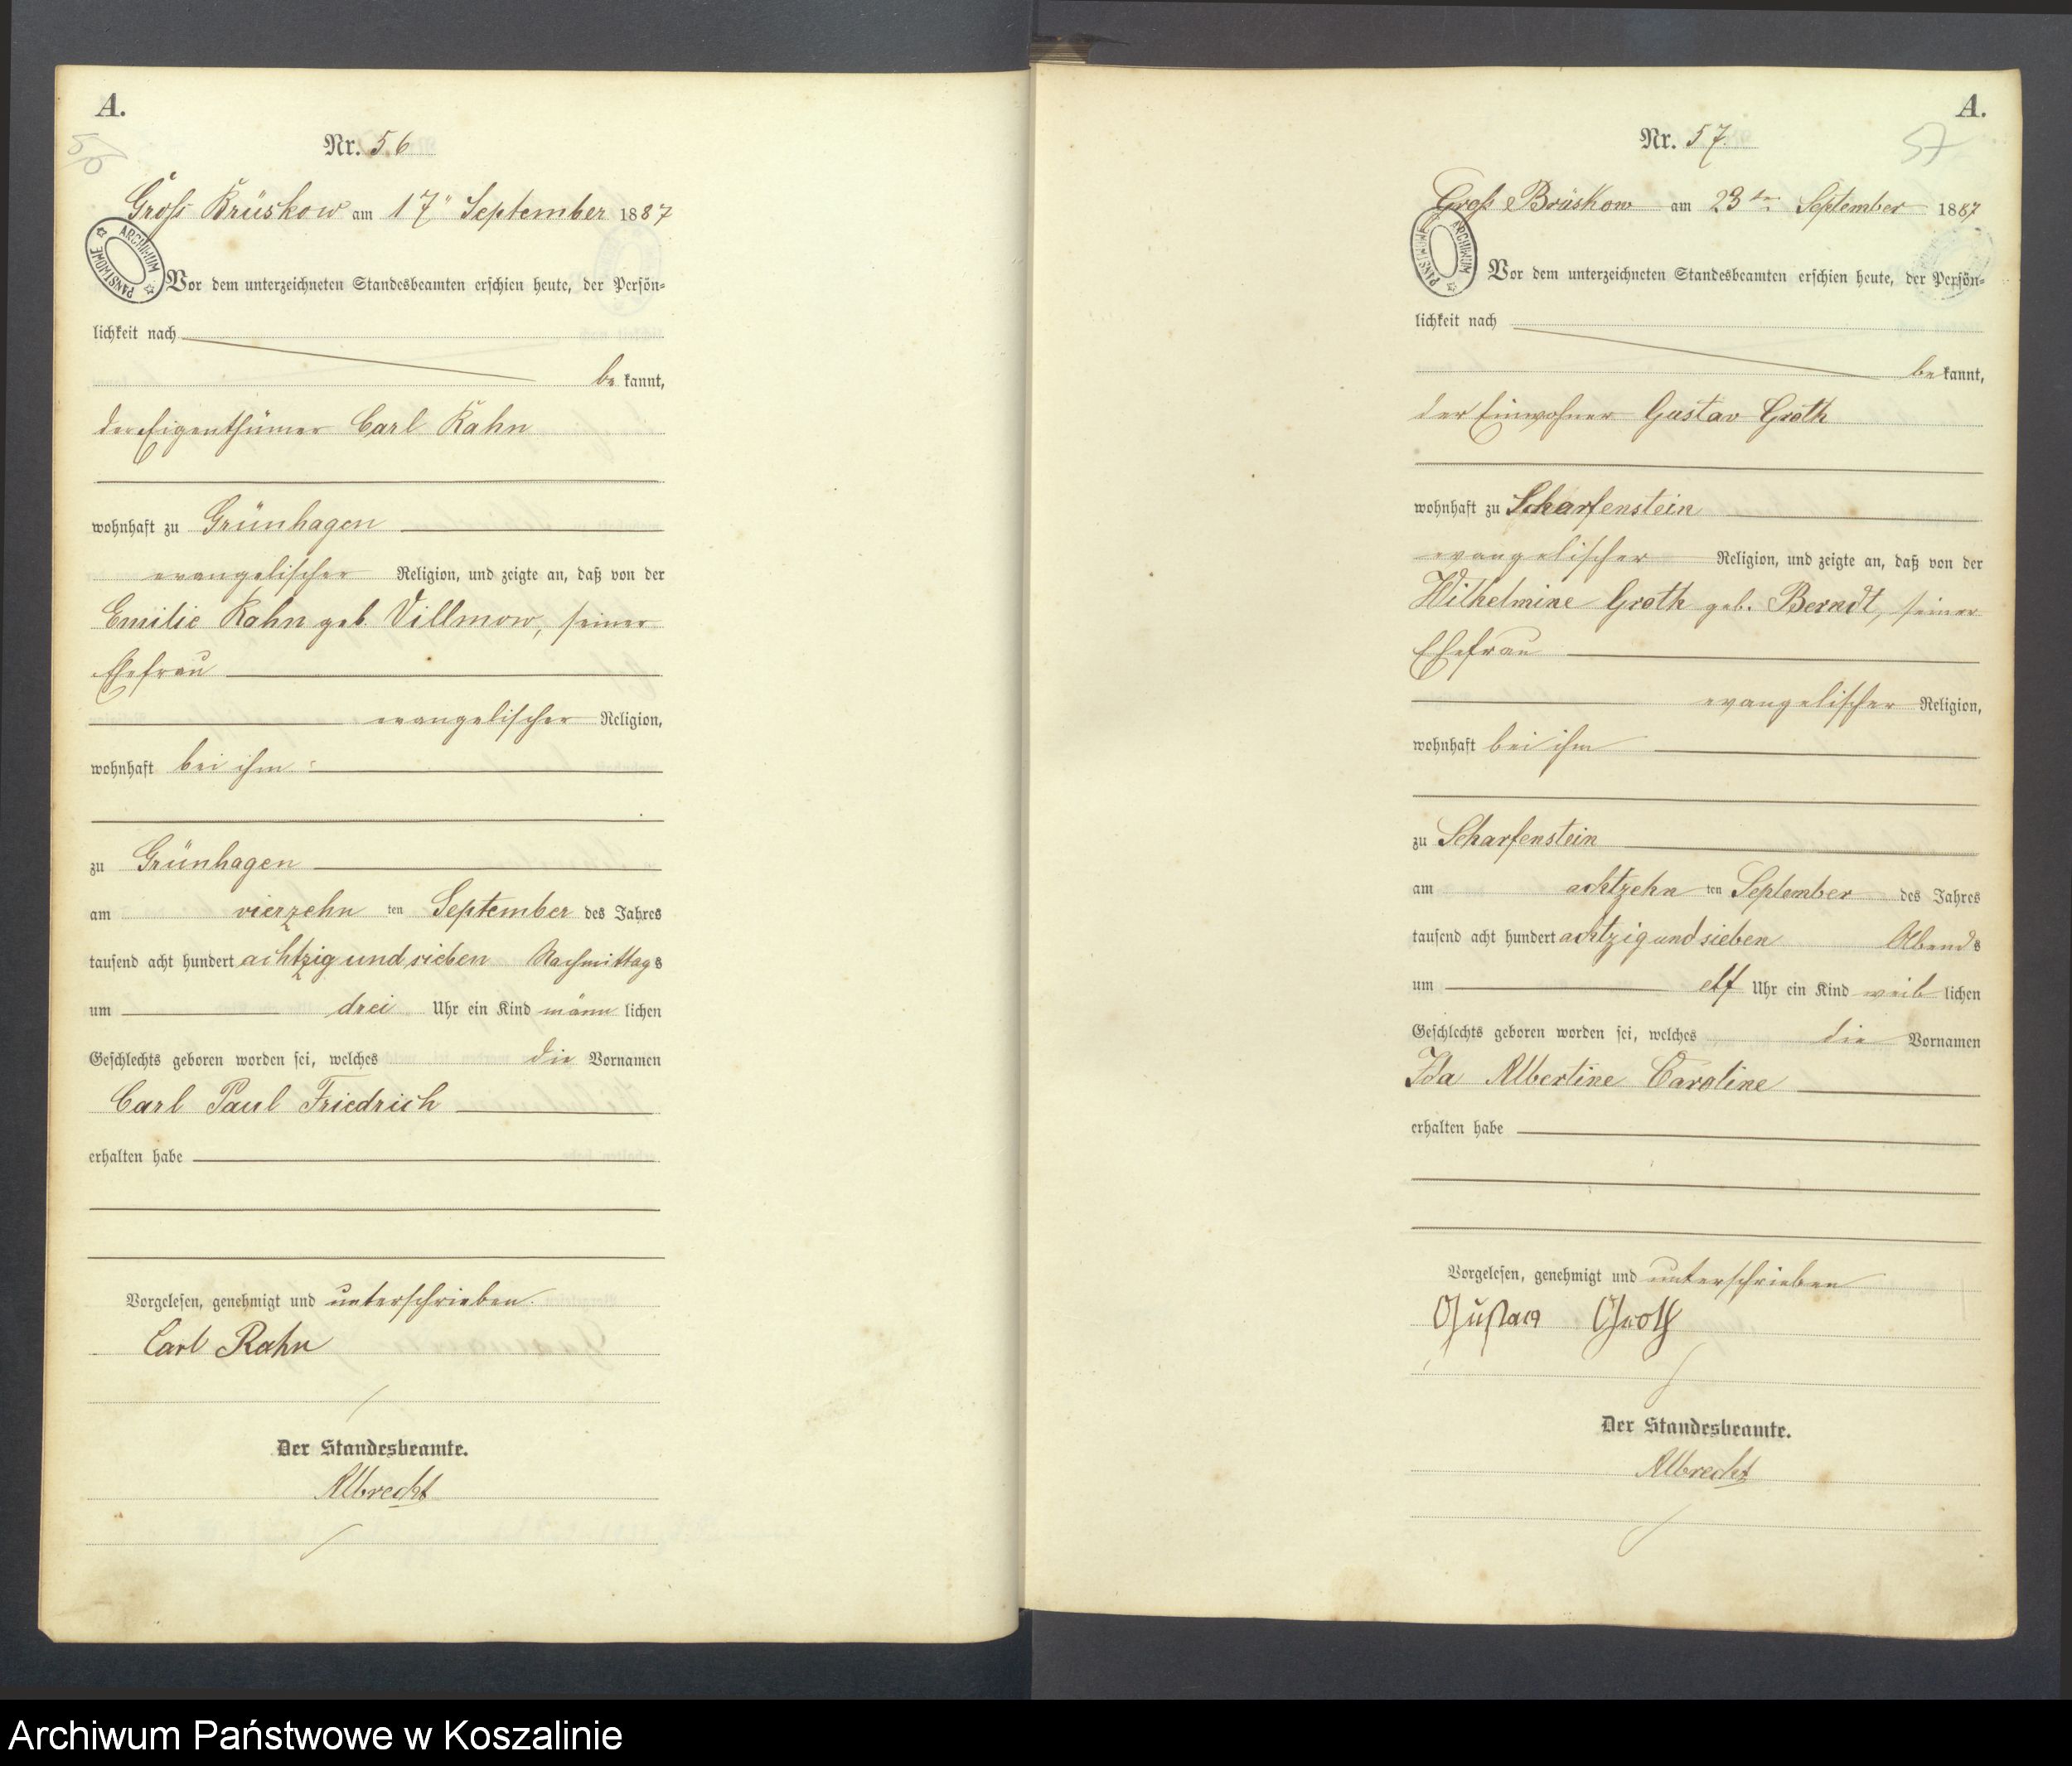 A.
56
Nr. 56
Groß Brüskow am 17" September 1887
ARCHIWUM PAŃSTWOWE
Vor dem unterzeichneten Standesbeamten erschien heute, der Persön-
lichkeit nach
be kannt,
der Eigenthümer Carl Rahn
wohnhaft zu Grünhagen
evangelischer Religion, und zeigte an, daß von der
Emilie Rahn geb. Villmow, seiner
Ehefrau
evangelischer Religion,
wohnhaft bei ihm
zu Grünhagen
am vierzehn ten September des Jahres
tausend acht hundert achtzig und sieben Nachmittags
um drei Uhr ein Kind männ lichen
Geschlechts geboren worden sei, welches die Vornamen
Carl Paul Friedrich
erhalten habe
Vorgelesen, genehmigt und unterschrieben.
Carl Rahn
Der Standesbeamte.
Albrecht
A.
57
Nr. 57.
Groß Brüskow am 23ten September 1887
ARCHIWUM PAŃSTWOWE
Vor dem unterzeichneten Standesbeamten erschien heute, der Persön-
lichkeit nach
be kannt,
der Einwohner Gustav Groth
wohnhaft zu Scharfenstein
evangelischer Religion, und zeigte an, daß von der
Wilhelmine Groth geb. Berndt, seiner
Ehefrau
evangelischer Religion,
wohnhaft bei ihm
zu Scharfenstein
am achtzehn ten September des Jahres
tausend acht hundert achtzig und sieben Abends
um elf Uhr ein Kind weib lichen
Geschlechts geboren worden sei, welches die Vornamen
Ida Albertine Caroline
erhalten habe
Vorgelesen, genehmigt und unterschrieben
Gustav Groth
Der Standesbeamte.
Albrecht
Archiwum Państwowe w Koszalinie